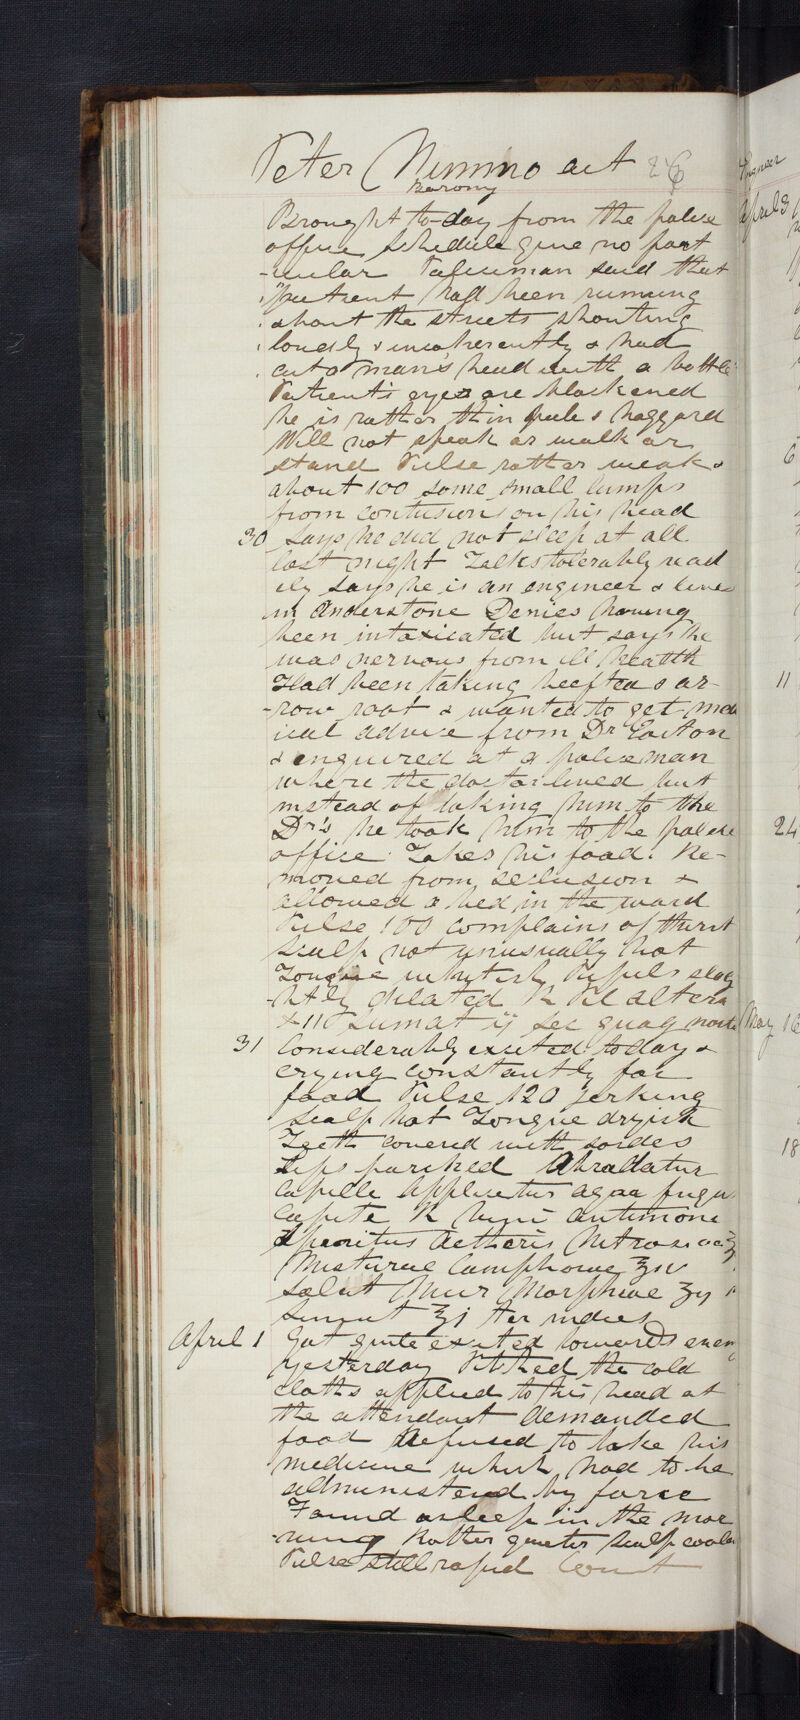 Peter Nimmo aet 26
Barony
Brought to-day from the police
office Schedule give no part
-icular Policeman said that
patient had been running
about the streets shouting
loudly & incoherently & had
cut a man's head with a bottle
Patient's eyes are blackened
he is rather thin pale & haggard
Will not speak or walk or
stand Pulse rather weak &
about 100 some small lumps
from contusions on his head
30 Says he did not sleep at all
last night Talks tolerably read
ily says he is an engineer & lives
in Anderstone Denies having
been intoxicated but says he
was nervous from ill health
Had been taking beeftea & ar-
-row root & wanted to get med
ical advice from Dr Easton
& enquired at a policeman
where the doctor lived but
instead of taking him to the
Dr's he took him to the police
office Takes his food. Re-
moved from seclusion &
allowed a bed in the ward
Pulse 100 complains of thirst
Scalp not unusually hot
Tongue whiteish Pupils slig
-htly dilated R Pil altera
Sumat ij sec quaq nocte
31 Considerably excited to day &
crying constantly for
food Pulse 120 jerking
Scalp hot Tongue dryish
Teeth covered with sordes
Lips parched Abradatur
Capille Applicetur aqua frigid
Capite R Vini Antimone
Spiritus Aetheris Nitros
Misturae Camphorae
Solut Mur Morphiae
Sumat ʒj ter indies
April 1 Got quite excited towards even
yesterday Pitched the cold
cloths applied to his head at
the attendant Demanded
food Refused to take his
medicine which had to be
administered by force
Found asleep in the mor
-ning Rather quieter Scalp cooler
Pulse still rapid Cont
Engineer
April 3
6
11
24
May 16
18